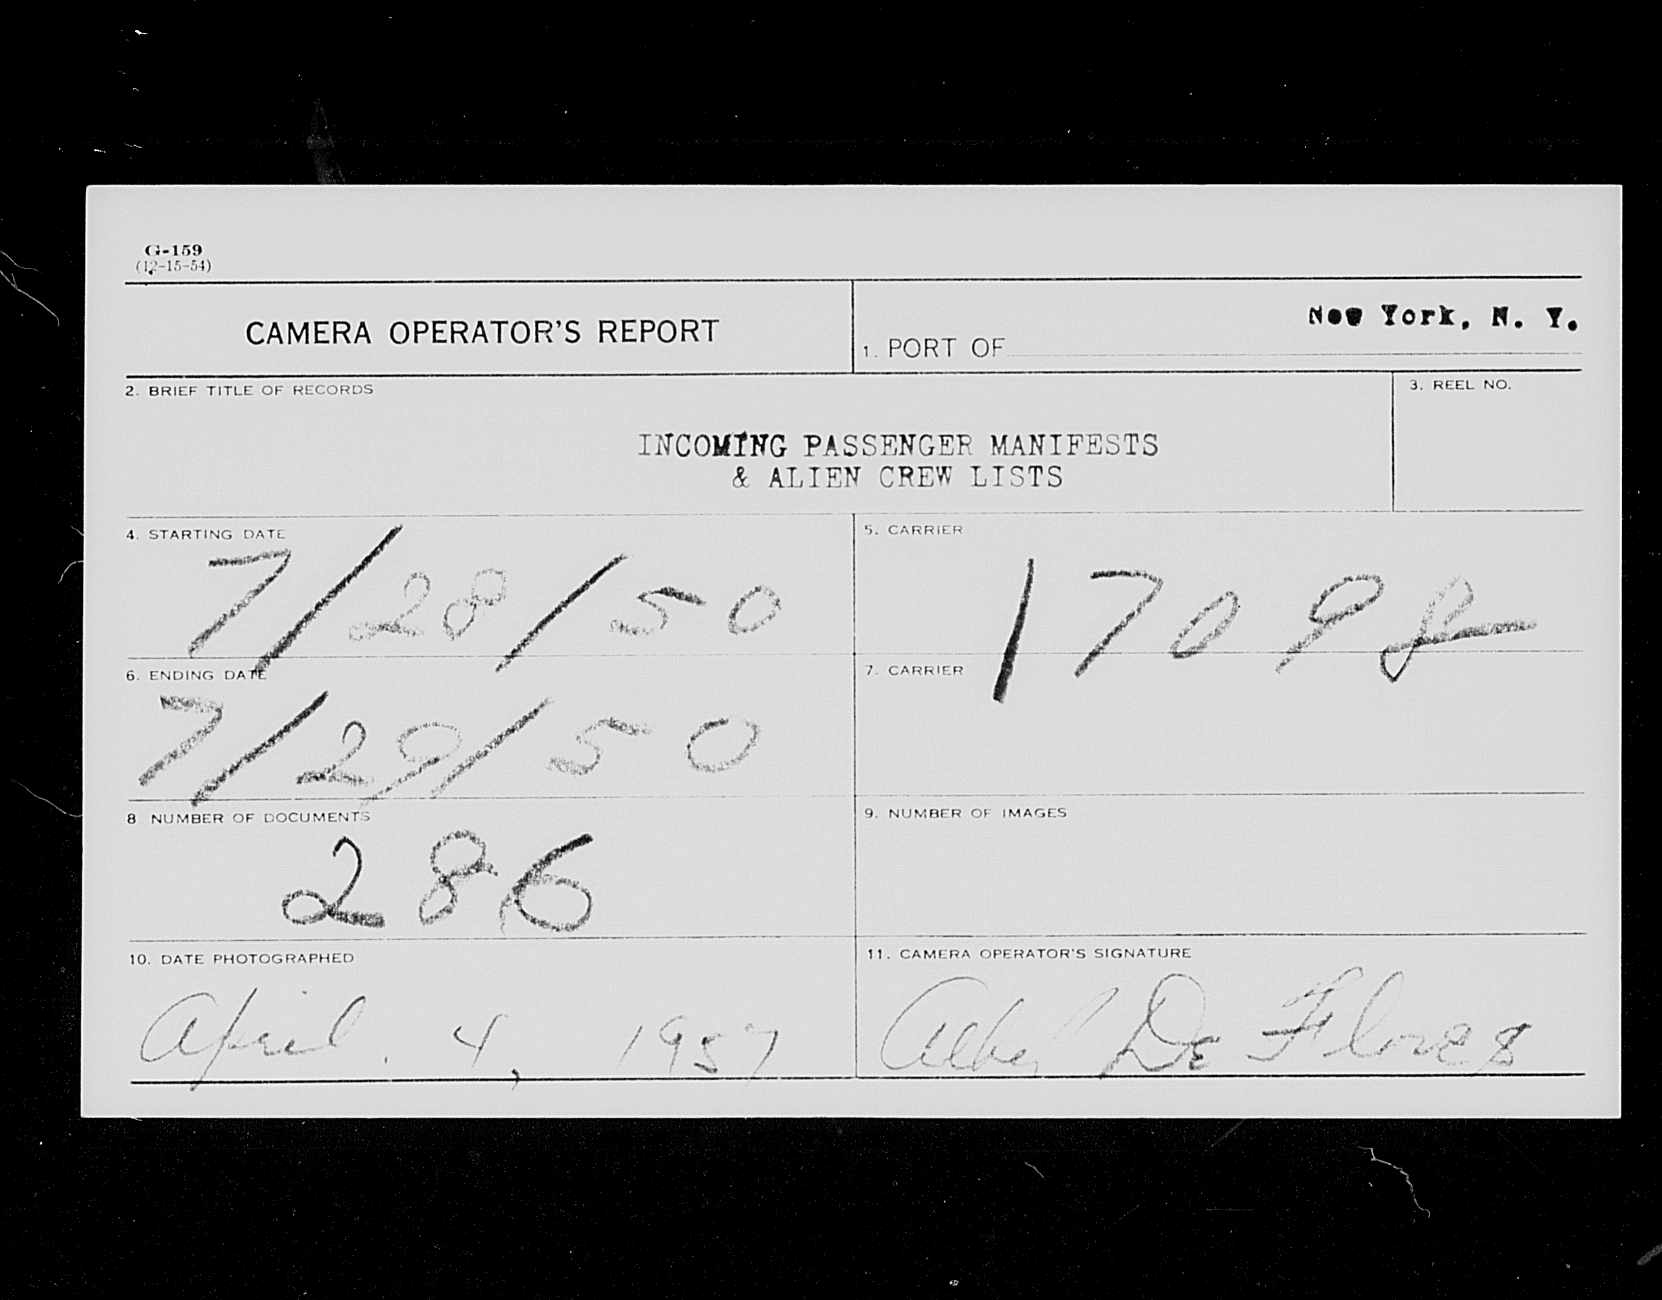 G-159
(12-15-54)
CAMERA OPERATOR'S REPORT
1. PORT OF New York, N. Y.
2. BRIEF TITLE OF RECORDS
3. REEL NO.
INCOMING PASSENGER MANIFESTS
& ALIEN CREW LISTS
4. STARTING DATE
7/28/50
5. CARRIER
17098
6. ENDING DATE
7/29/50
7. CARRIER
8 NUMBER OF DOCUMENTS
286
9. NUMBER OF IMAGES
10. DATE PHOTOGRAPHED
April. 4, 1957
11. CAMERA OPERATOR'S SIGNATURE
De Flores